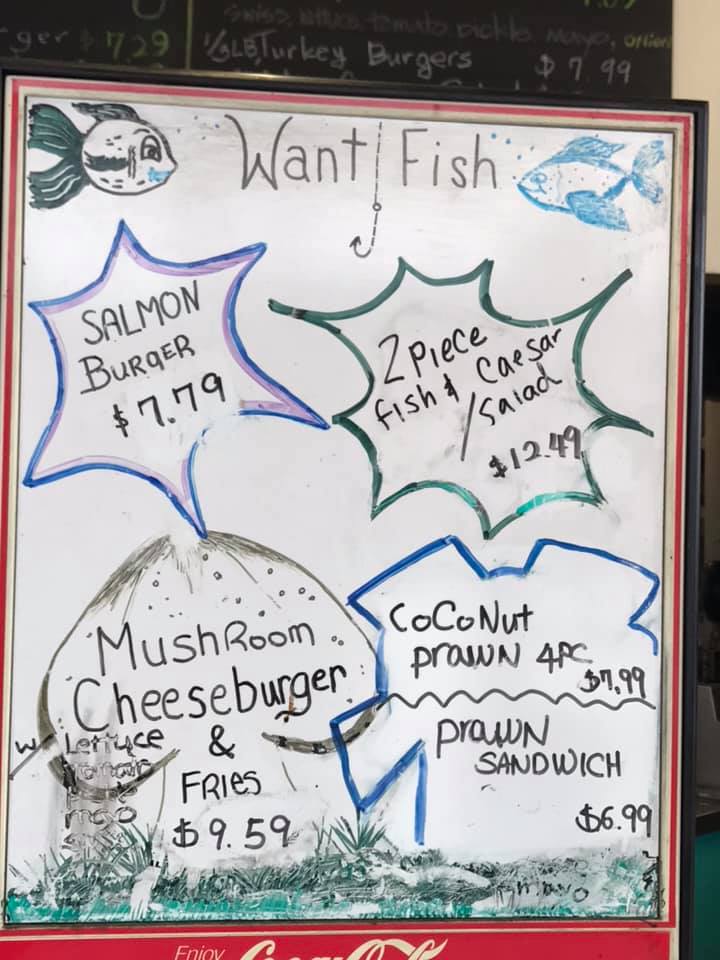 Swiss, lettuce tomato pickle mayo, onion
$ 7.29
1/3LB Turkey Burgers $ 7.99
Want Fish
SALMON
BURGER
$7.79
2 Piece
fish & Caesar
/Salad
$12.49
MushRoom
Cheeseburger
w/ Lettuce
tomato
mayo
&
FRIES
$9.59
CoCoNut
prawn 4pc
$7.99
prawn
SANDWICH
$6.99
Enjoy
Coca-Cola